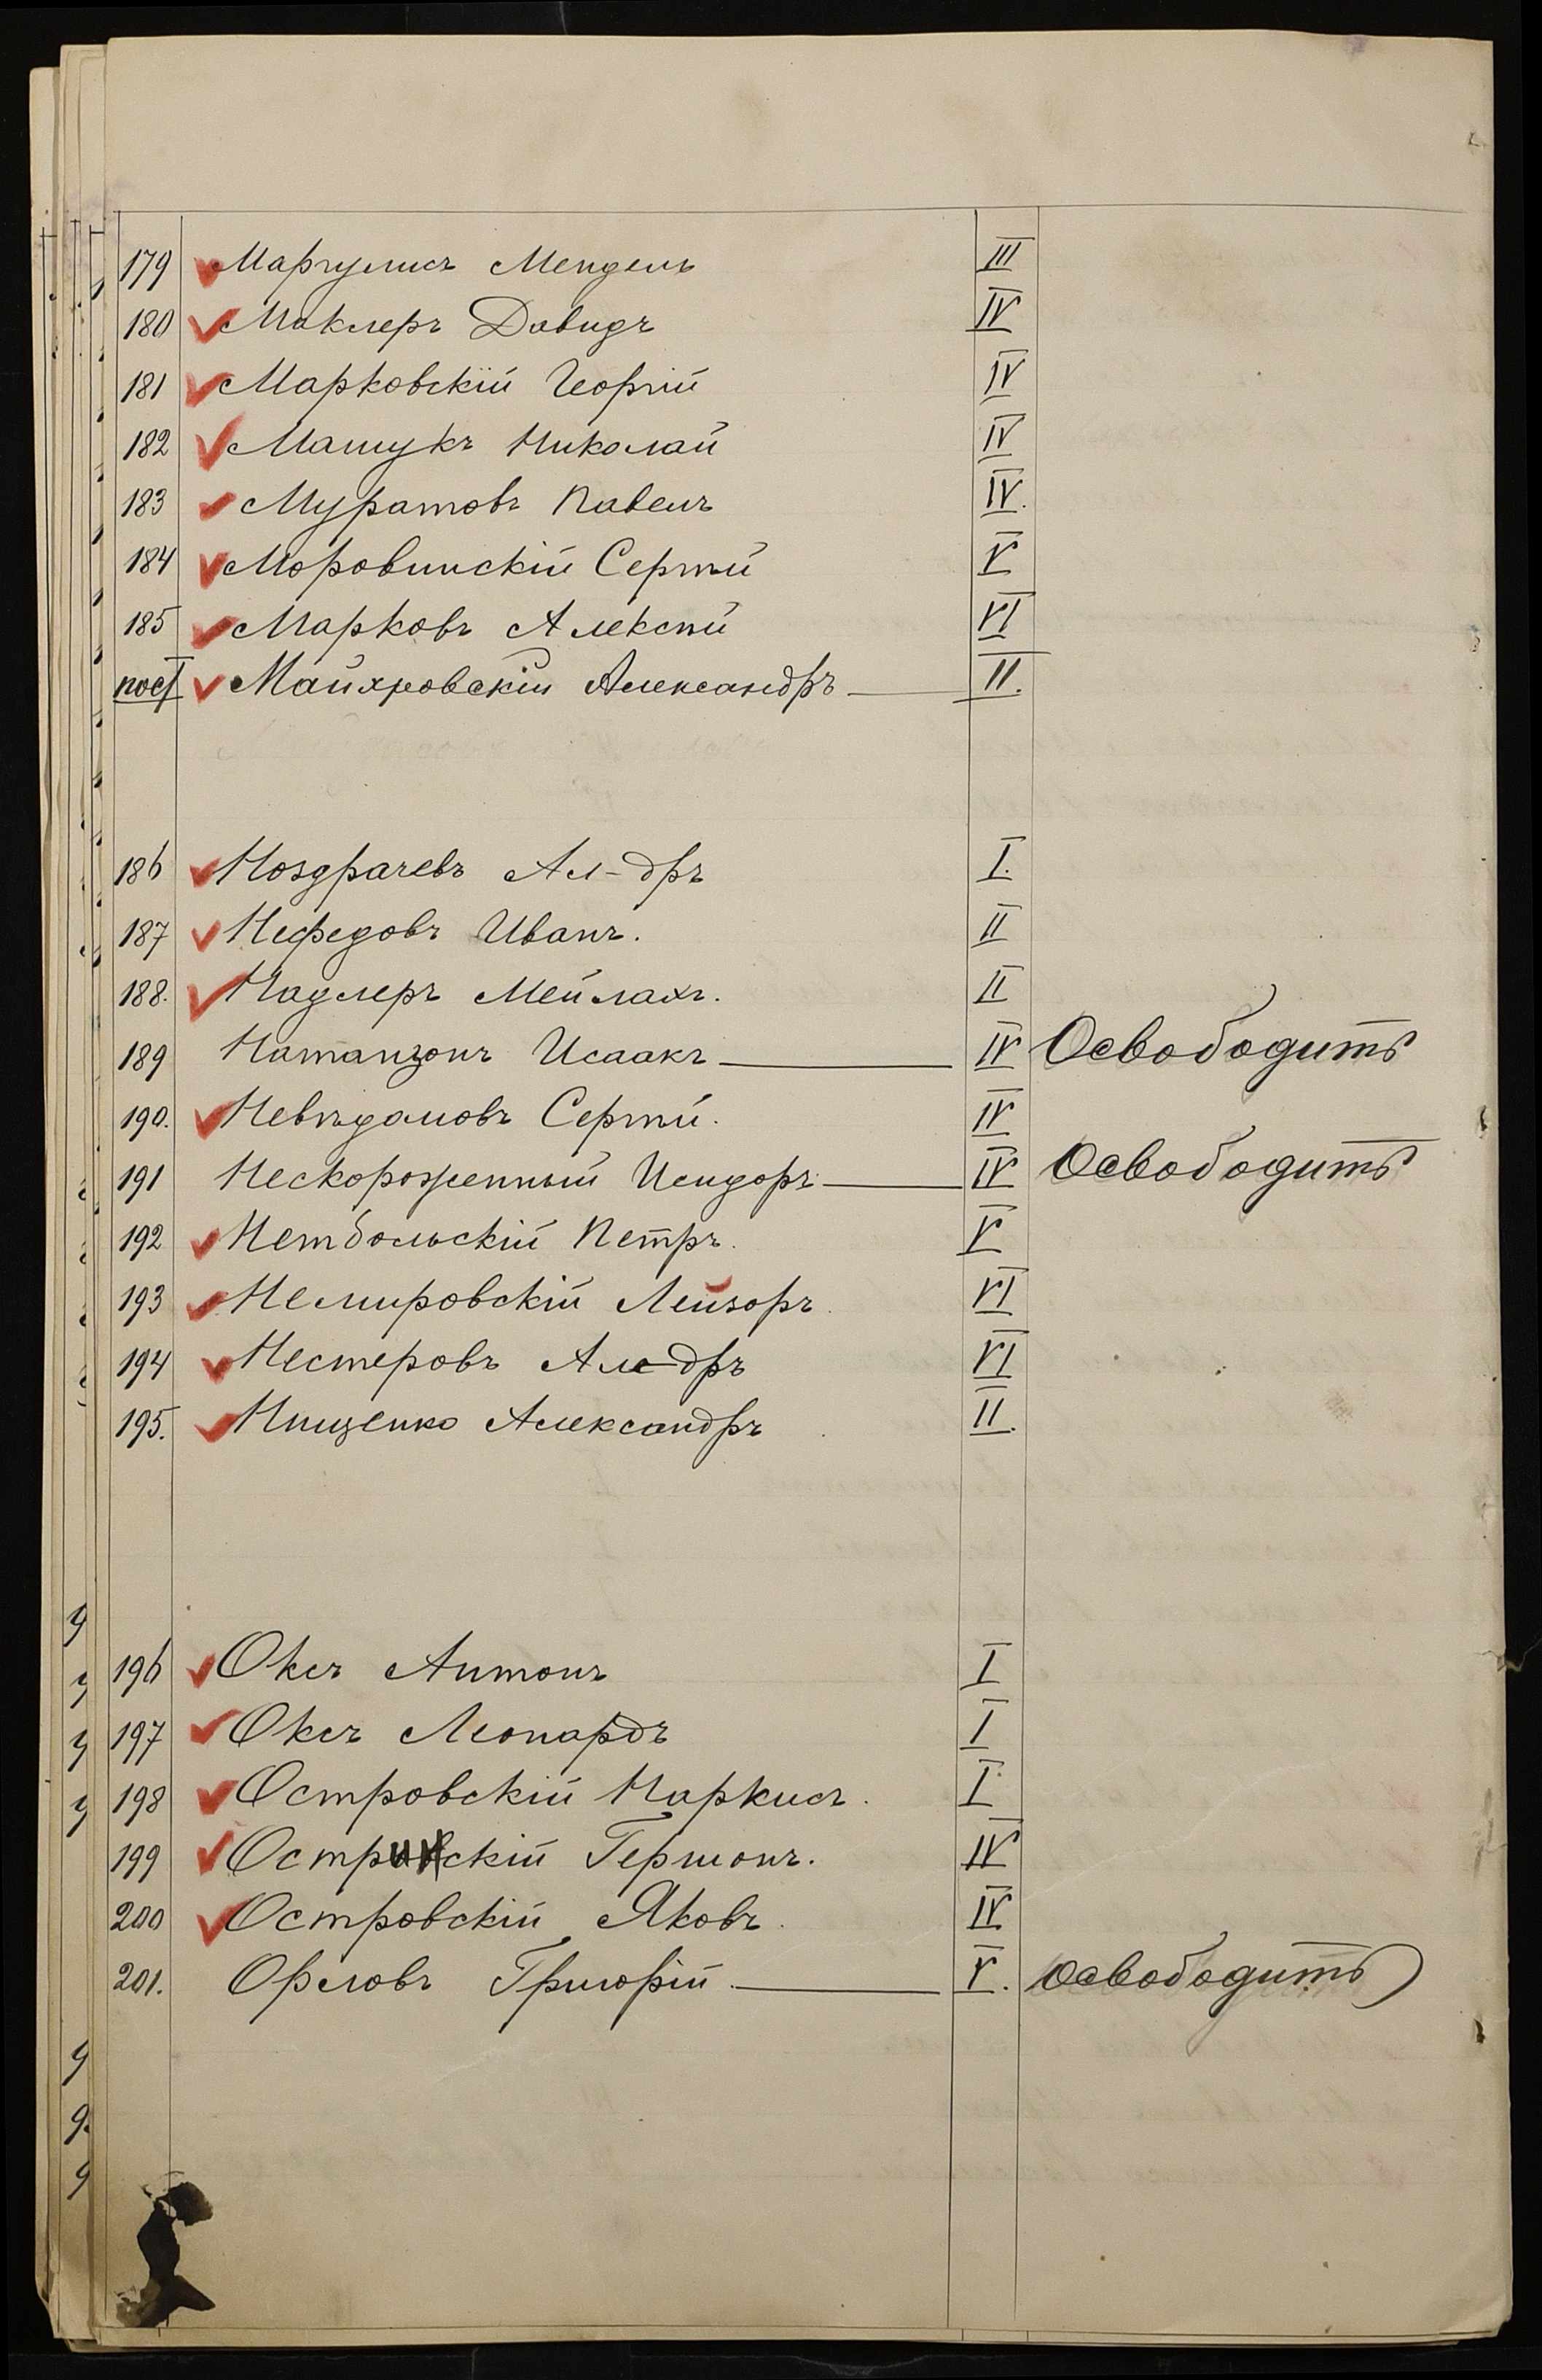 179 Маргулисъ Мендель III
180 Маклеръ Давидъ IV
181 Марковскій Георгій IV
182 Машукъ Николай IV
183 Муратовъ Павелъ IV.
184 Моровинскій Сергѣй V
185 Марковъ Алексѣй VI
Майхровскій Александръ II.
186 Ноздрачевъ Ал-дръ I.
187 Нефедовъ Иванъ. II
188. Надлеръ Мейлахъ. II
189 Натанзонъ Исаакъ IV Освободить
190. Невѣдамовъ Сергѣй. IV
191 Нескороженный Исидоръ IV Освободить
192 Нетбольскій Петръ. V
193 Немировскій Лейзоръ. VI
194 Нестеровъ Ал-дръ VI
195. Нищенко Александръ II.
196 Оксъ Антонъ I
197 Оксъ Леонардъ I
198 Островскій Наркисъ. I
199 Гершонъ. IV
200 Островскій Яковъ. IV
201. Орловъ Григорій V. Освободить